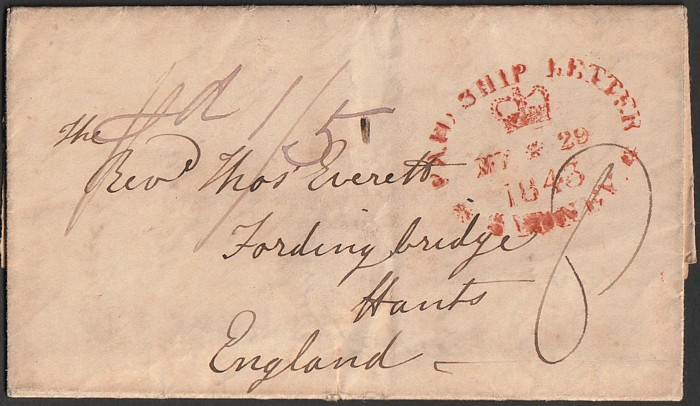 PAID SHIP LETTER
MY * 29
1843
* SYDNEY *
Pd 1/5
The
Revd Thos Everett
Fordingbridge
Hants
England
8